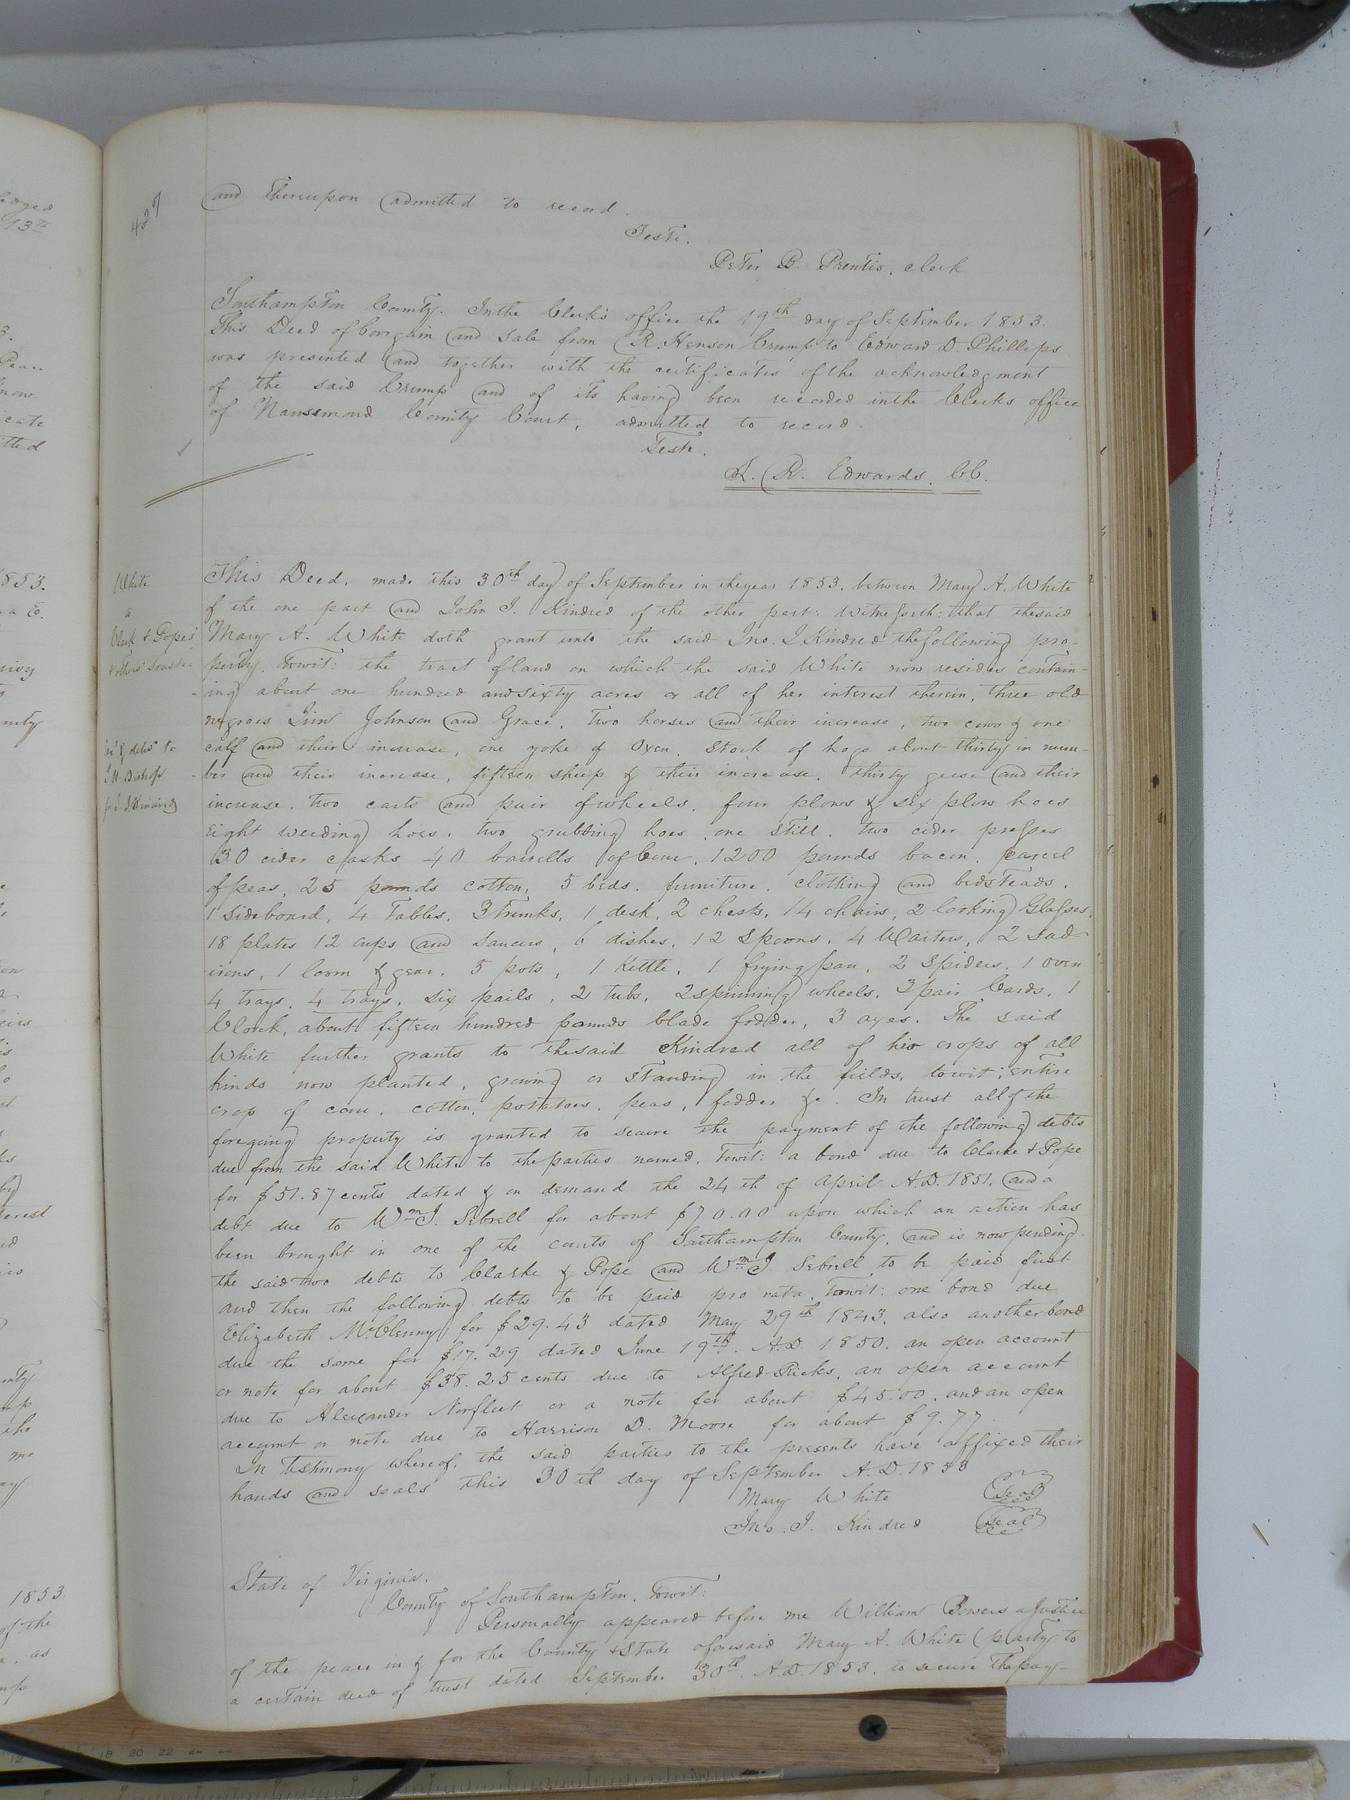 427
and thereupon admitted to record.
Teste.
Peter B. Prentis, clerk
Southampton County. In the Clerk's office the 19th day of September 1853.
This Deed of bargain and sale from R. Henson Crump to Edward D. Phillips
was presented and together with the certificates of the acknowledgment
of the said Crump and of its having been recorded in the Clerks office
of Nansemond County Court, admitted to record.
Teste.
L. R. Edwards. CC.
White
a
Clark & Pope's
& others' trustee
This Deed, made this 30th day of September in the year 1853. between Mary A. White
of the one part and John J. Kindred of the other part: Witnesseth: that the said
Mary A. White doth grant unto the said Jno. J Kindred the following pro-
perty. Towit: the tract of land on which the said White now resides contain-
ing about one hundred and sixty acres or all of her interest therein, three old
negroes Jim Johnson and Grace. Two horses and their increase, two cows & one
calf and their increase, one yoke of Oxen. Stock of hogs about thirty in num-
ber and their increase, fifteen sheep & their increase. Thirty geese and their
increase. two carts and pair of wheels. four plows & six plow hoes
Eight weeding hoes. two grubbing hoes. one still. two cider presses
30 cider casks 40 barrells of Corn, 1200 pounds bacon. parcel
of peas, 25 pounds cotton, 5 beds. furniture. clothing and bedsteads.
1 sideboard, 4 Tables, 3 Trunks, 1 desk, 2 chests, 14 chairs, 2 looking Glasses,
18 plates 12 cups and saucers, 6 dishes, 12 Spoons, 4 Waiters, 2 sad
irons, 1 loom & gear. 5 pots, 1 Kettle, 1 frying pan, 2 Spiders. 1 oven
4 trays. 4 trays, six pails, 2 tubs, 2 spinning wheels. 2 pair Cards, 1
Clock, about fifteen hundred pounds blade fodder, 3 axes. The said
White further grants to the said Kindred all of her crops of all
kinds now planted, growing or standing in the fields. towit: entire
crop of corn. cotton, potatoes. peas, fodder &c. In trust all of the
foregoing property is granted to secure the payment of the following debts
due from the said White to the parties named. Towit: a bond due to Clarke & Pope
for $51.87 cents dated & on demand the 24th of April A.D. 1851. and a
debt due to Wm J. Sebrell for about $70.00 upon which an action has
been brought in one of the courts of Southampton County, and is now pending.
the said two debts to Clarke & Pope and Wm J Sebrell to be paid first
and then the following debts to be paid pro rata. Towit: one bond due
Elizabeth McClenny for $29.43 dated May 29th 1843. also another bond
due the same for $17.29 dated June 19th. A.D. 1850. an open account
or note for about $38.25 cents due to Alfred Ricks, an open account
due to Alexander Norfleet or a note for about $45.00. and an open
account or note due to Harrison D. Moore for about $9.77.
In testimony whereof, the said parties to the presents have affixed their
hands and seals this 30th day of September A.D. 1853
Mary White Seal
Jno. J. Kindred Seal
State of Virginia.
County of Southampton. Towit:
Personally appeared before me William Bowers a Justice
of the peace in & for the County & State aforesaid Mary A. White (party to
a certain deed of trust dated September 30th A.D 1853. to secure the pay-